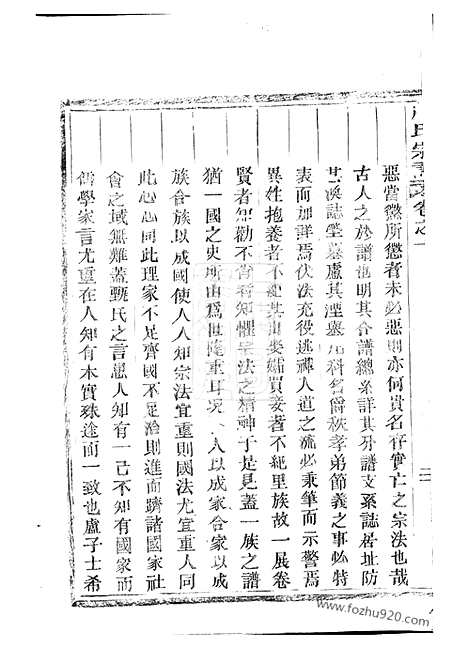 氏宗譜 卷之一
惡當懲所懲者未必惡則亦何貴名存實亡之宗法也哉
古人之於譜也明其合譜總系詳其分譜支系誌居址防
其渙誌塋墓慮其湮舉凡科名爵秩孝弟節義之事必特
表而加詳焉伏法充役逃禪人道之流必秉筆而示警焉
異姓抱養者不紀其由娶孀買妾者不紀里族故一展卷
賢者知勸不肖者知懼宗法之精神于是見蓋一族之譜
猶一國之史所由爲世隆重耳况 人以成家合家以成
族合族以成國使人人知宗法宜重則國法尤宜重人同
此心心同此理家不足齊國不足治則進而躋諸國家社
會之域無難蓋甄氏之言愚人知有一己不知有國家而
儒學家言尤重在人知有本實殊途而一致也盧子士希
二
www.fozhu920.com